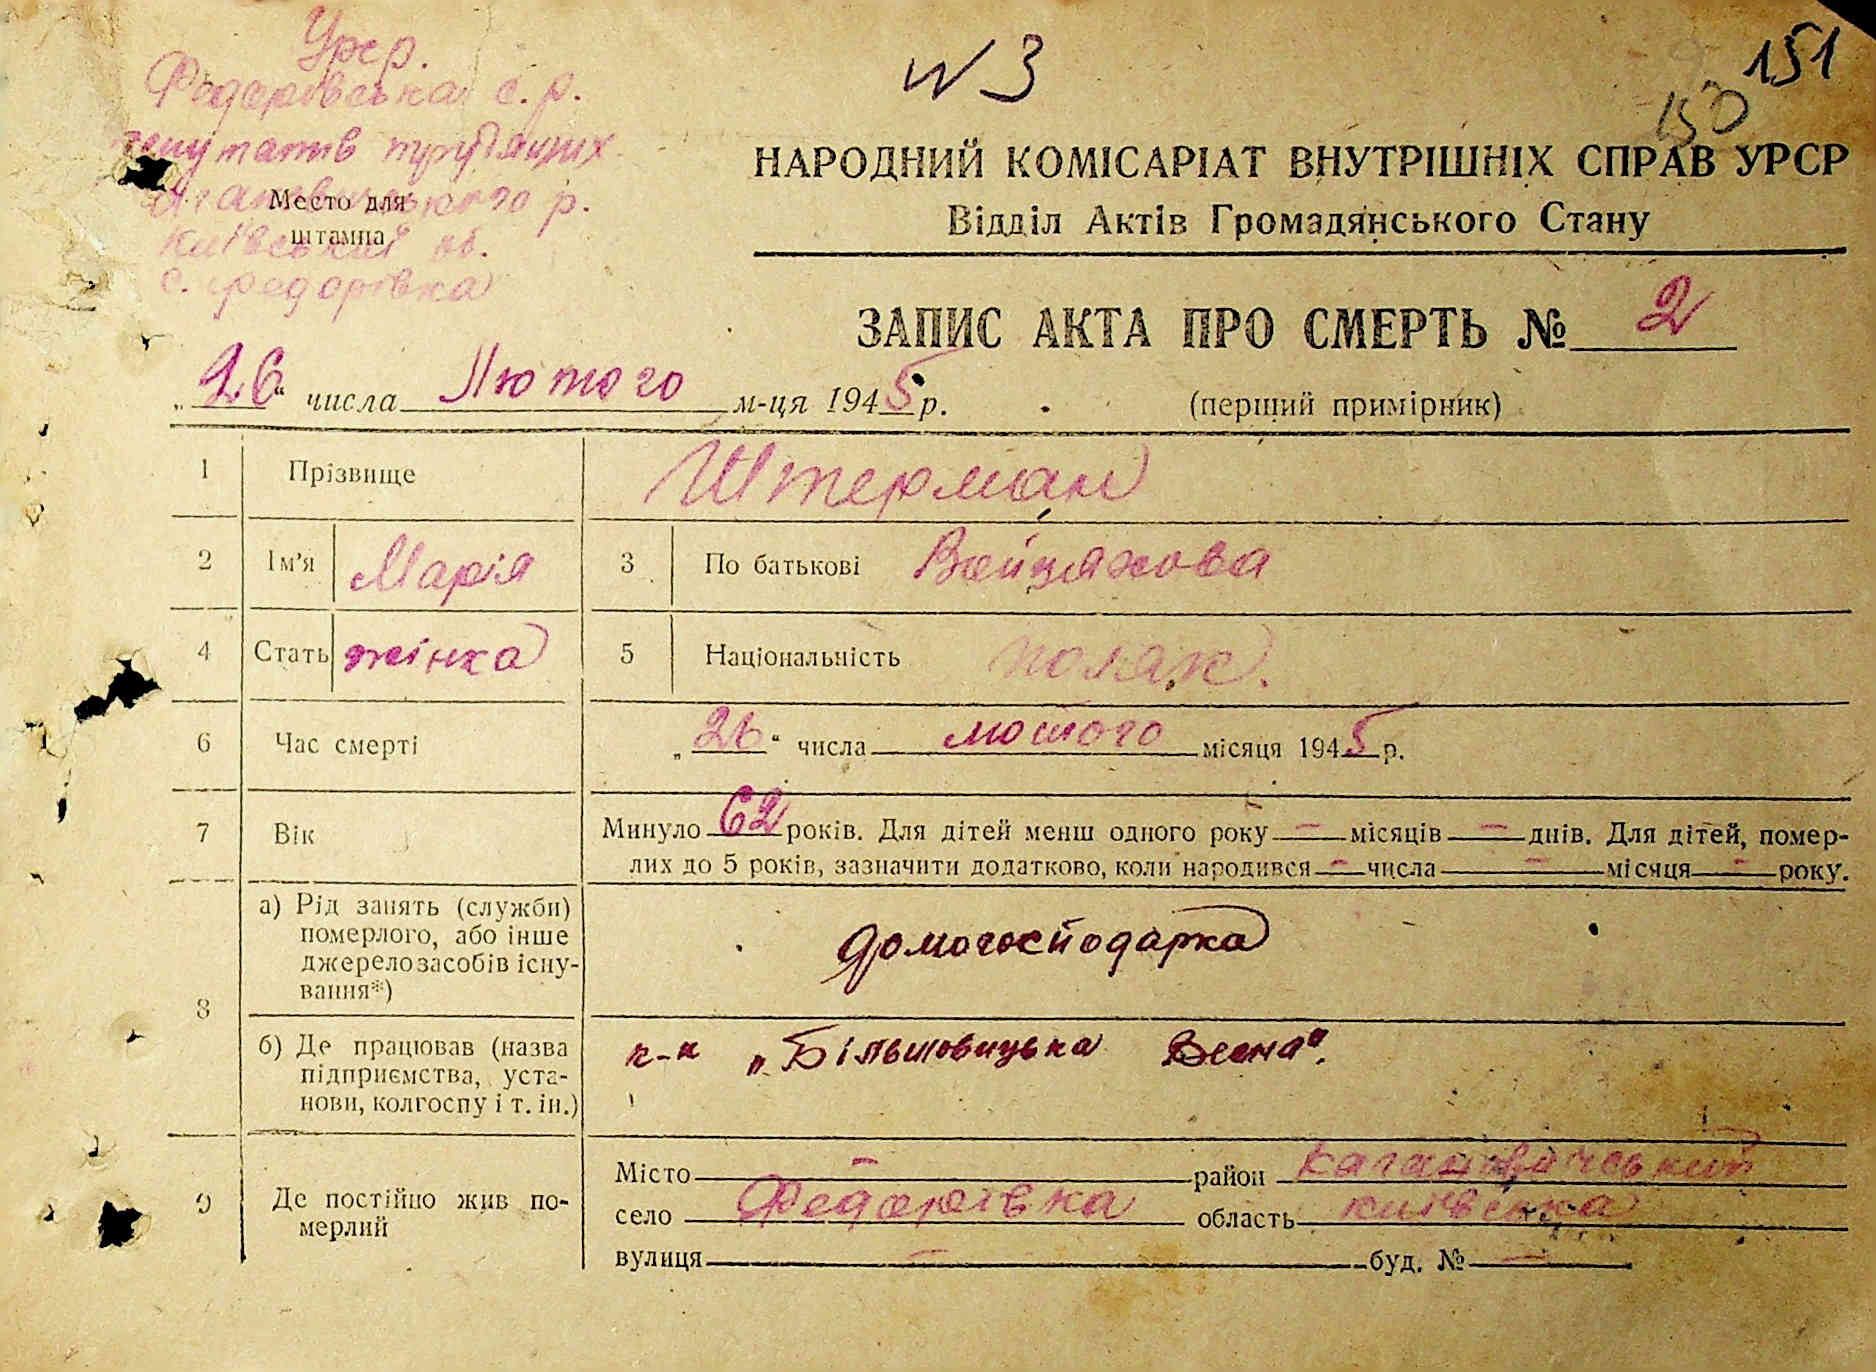 N 3
151
150
Урср.
Федорівська с. р.
депутатів трудящих
Кагановицького р.
Київський об.
с. Федорівка
Место для
штампа
НАРОДНИЙ КОМІСАРІАТ ВНУТРІШНІХ СПРАВ УРСР
Відділ Актів Громадянського Стану
ЗАПИС АКТА ПРО СМЕРТЬ № 2
„26“ числа Лютого м-ця 1945 р.
(перший примірник)
1 Прізвище Штерман
2 Ім’я Марія 3 По батькові Войцяхова
4 Стать жінка 5 Національність поляк.
6 Час смерті „26“ числа лютого місяця 1945 р.
7 Вік Минуло 62 років. Для дітей менш одного року — місяців — днів. Для дітей, помер-
лих до 5 років, зазначити додатково, коли народився — числа — місяця — року.
8 а) Рід занять (служби)
померлого, або інше
джерело засобів існу-
вання*)
домогосподарка
б) Де працював (назва
підприємства, уста-
нови, колгоспу і т. ін.)
к-п „Більшовицька Весна“.
9 Де постійно жив по-
мерлий
Місто — район Кагановичський
село Федорівка область київська
вулиця — буд. № —